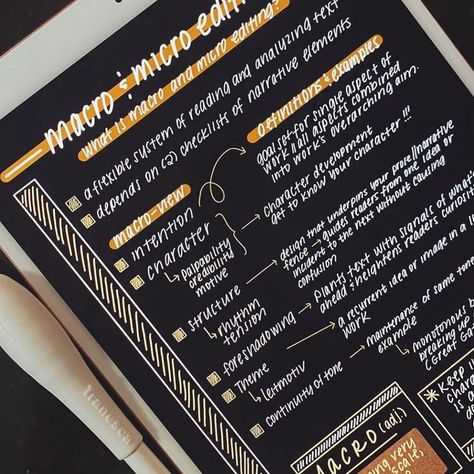 macro & micro editing
what is macro and micro editing?
a flexible system of reading and analyzing text
depends on (2) checklists of narrative elements
macro-view
definitions & examples
intention
goal set for single aspect of
work. all aspects combined
into work's overarching aim.
character
character development
get to know your character!!!
palpability
credibility
motive
structure
design that underpins your prose/narrative
fence → guides readers from one idea or
incident to the next without causing
confusion
rhythm
tension
foreshadowing
plants text with signals of what's
ahead & heightens readers
Theme
a recurrent idea or image in a
work
leitmotiv
continuity of tone
maintenance of same tone
example
monotonous
breaking up
(Great
*Keep
MACRO (adj)
very
scale
francesca